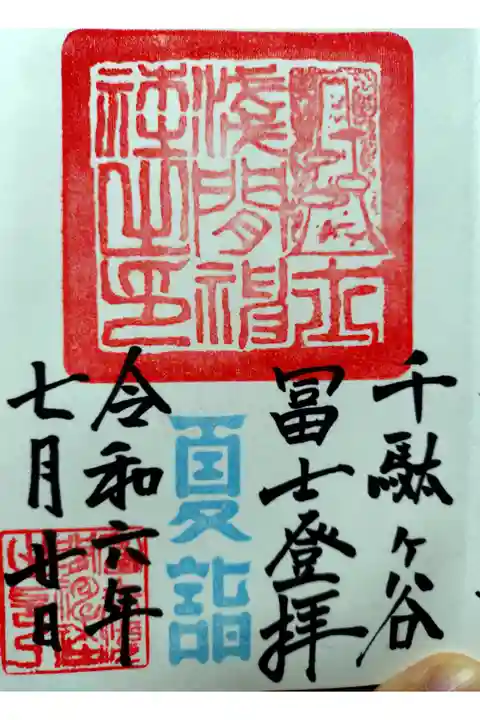 冨士
淺間神
社之印
千駄ヶ谷
冨士登拝
夏詣
令和六年
七月廿日